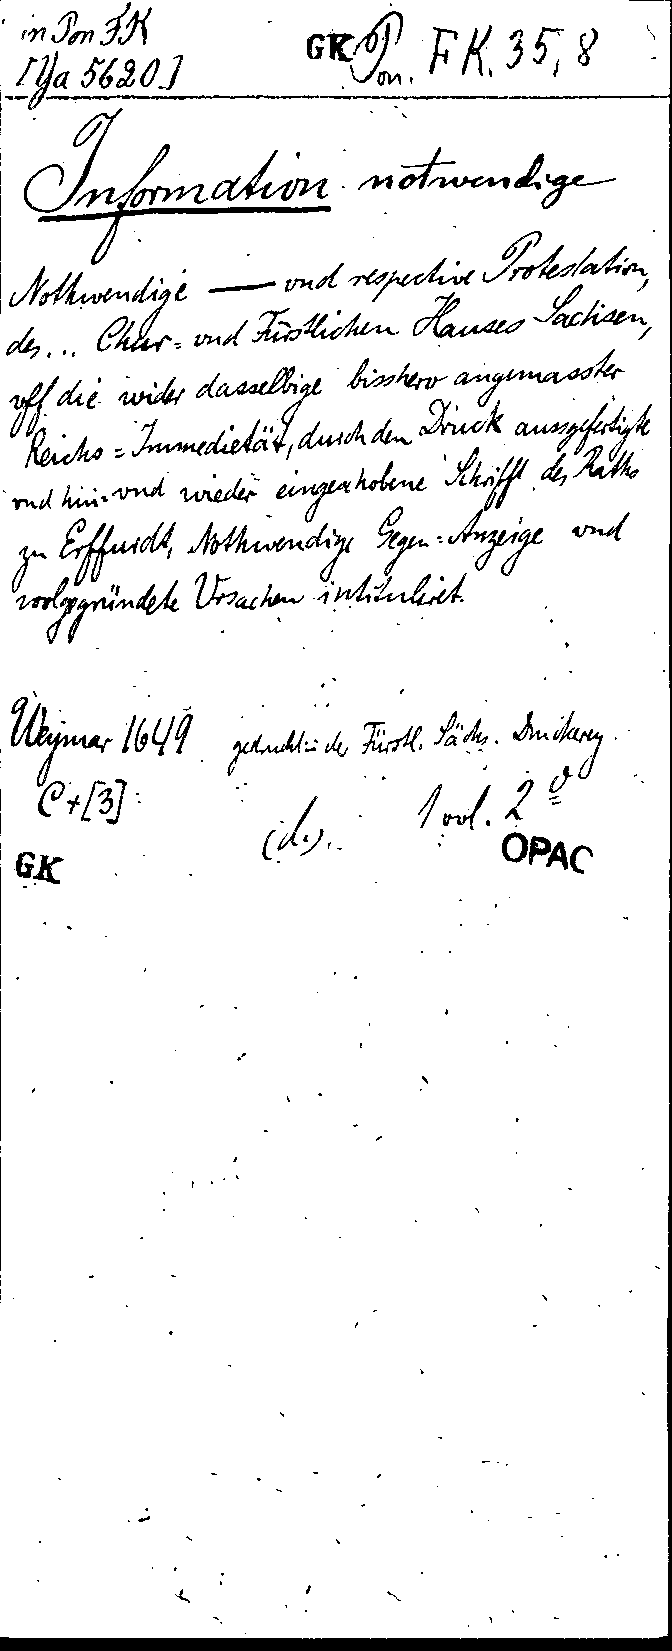 in Pon FK
[Ya 5620]
GK Pon. FK. 35, 8
Information notwendige
Nothwendige — vnd respective Protestation,
des... Chur= vnd Fürstlichen Hauses Sachsen,
vff die wider dasselbige bisshero angemasster
Reichs=Immedietät, durch den Druck aussgefertigte
vnd hin= vnd wieder eingeschobene Schrifft des Raths
zu Erffurdt, Nothwendige Gegen=Anzeige vnd
wolgegründete Vrsachen intituliret.
Weymar 1649 gedruckt in der Fürstl. Sächs. Druckerey.
C + [3]
(d.). 1 vol. 2°
GK OPAC